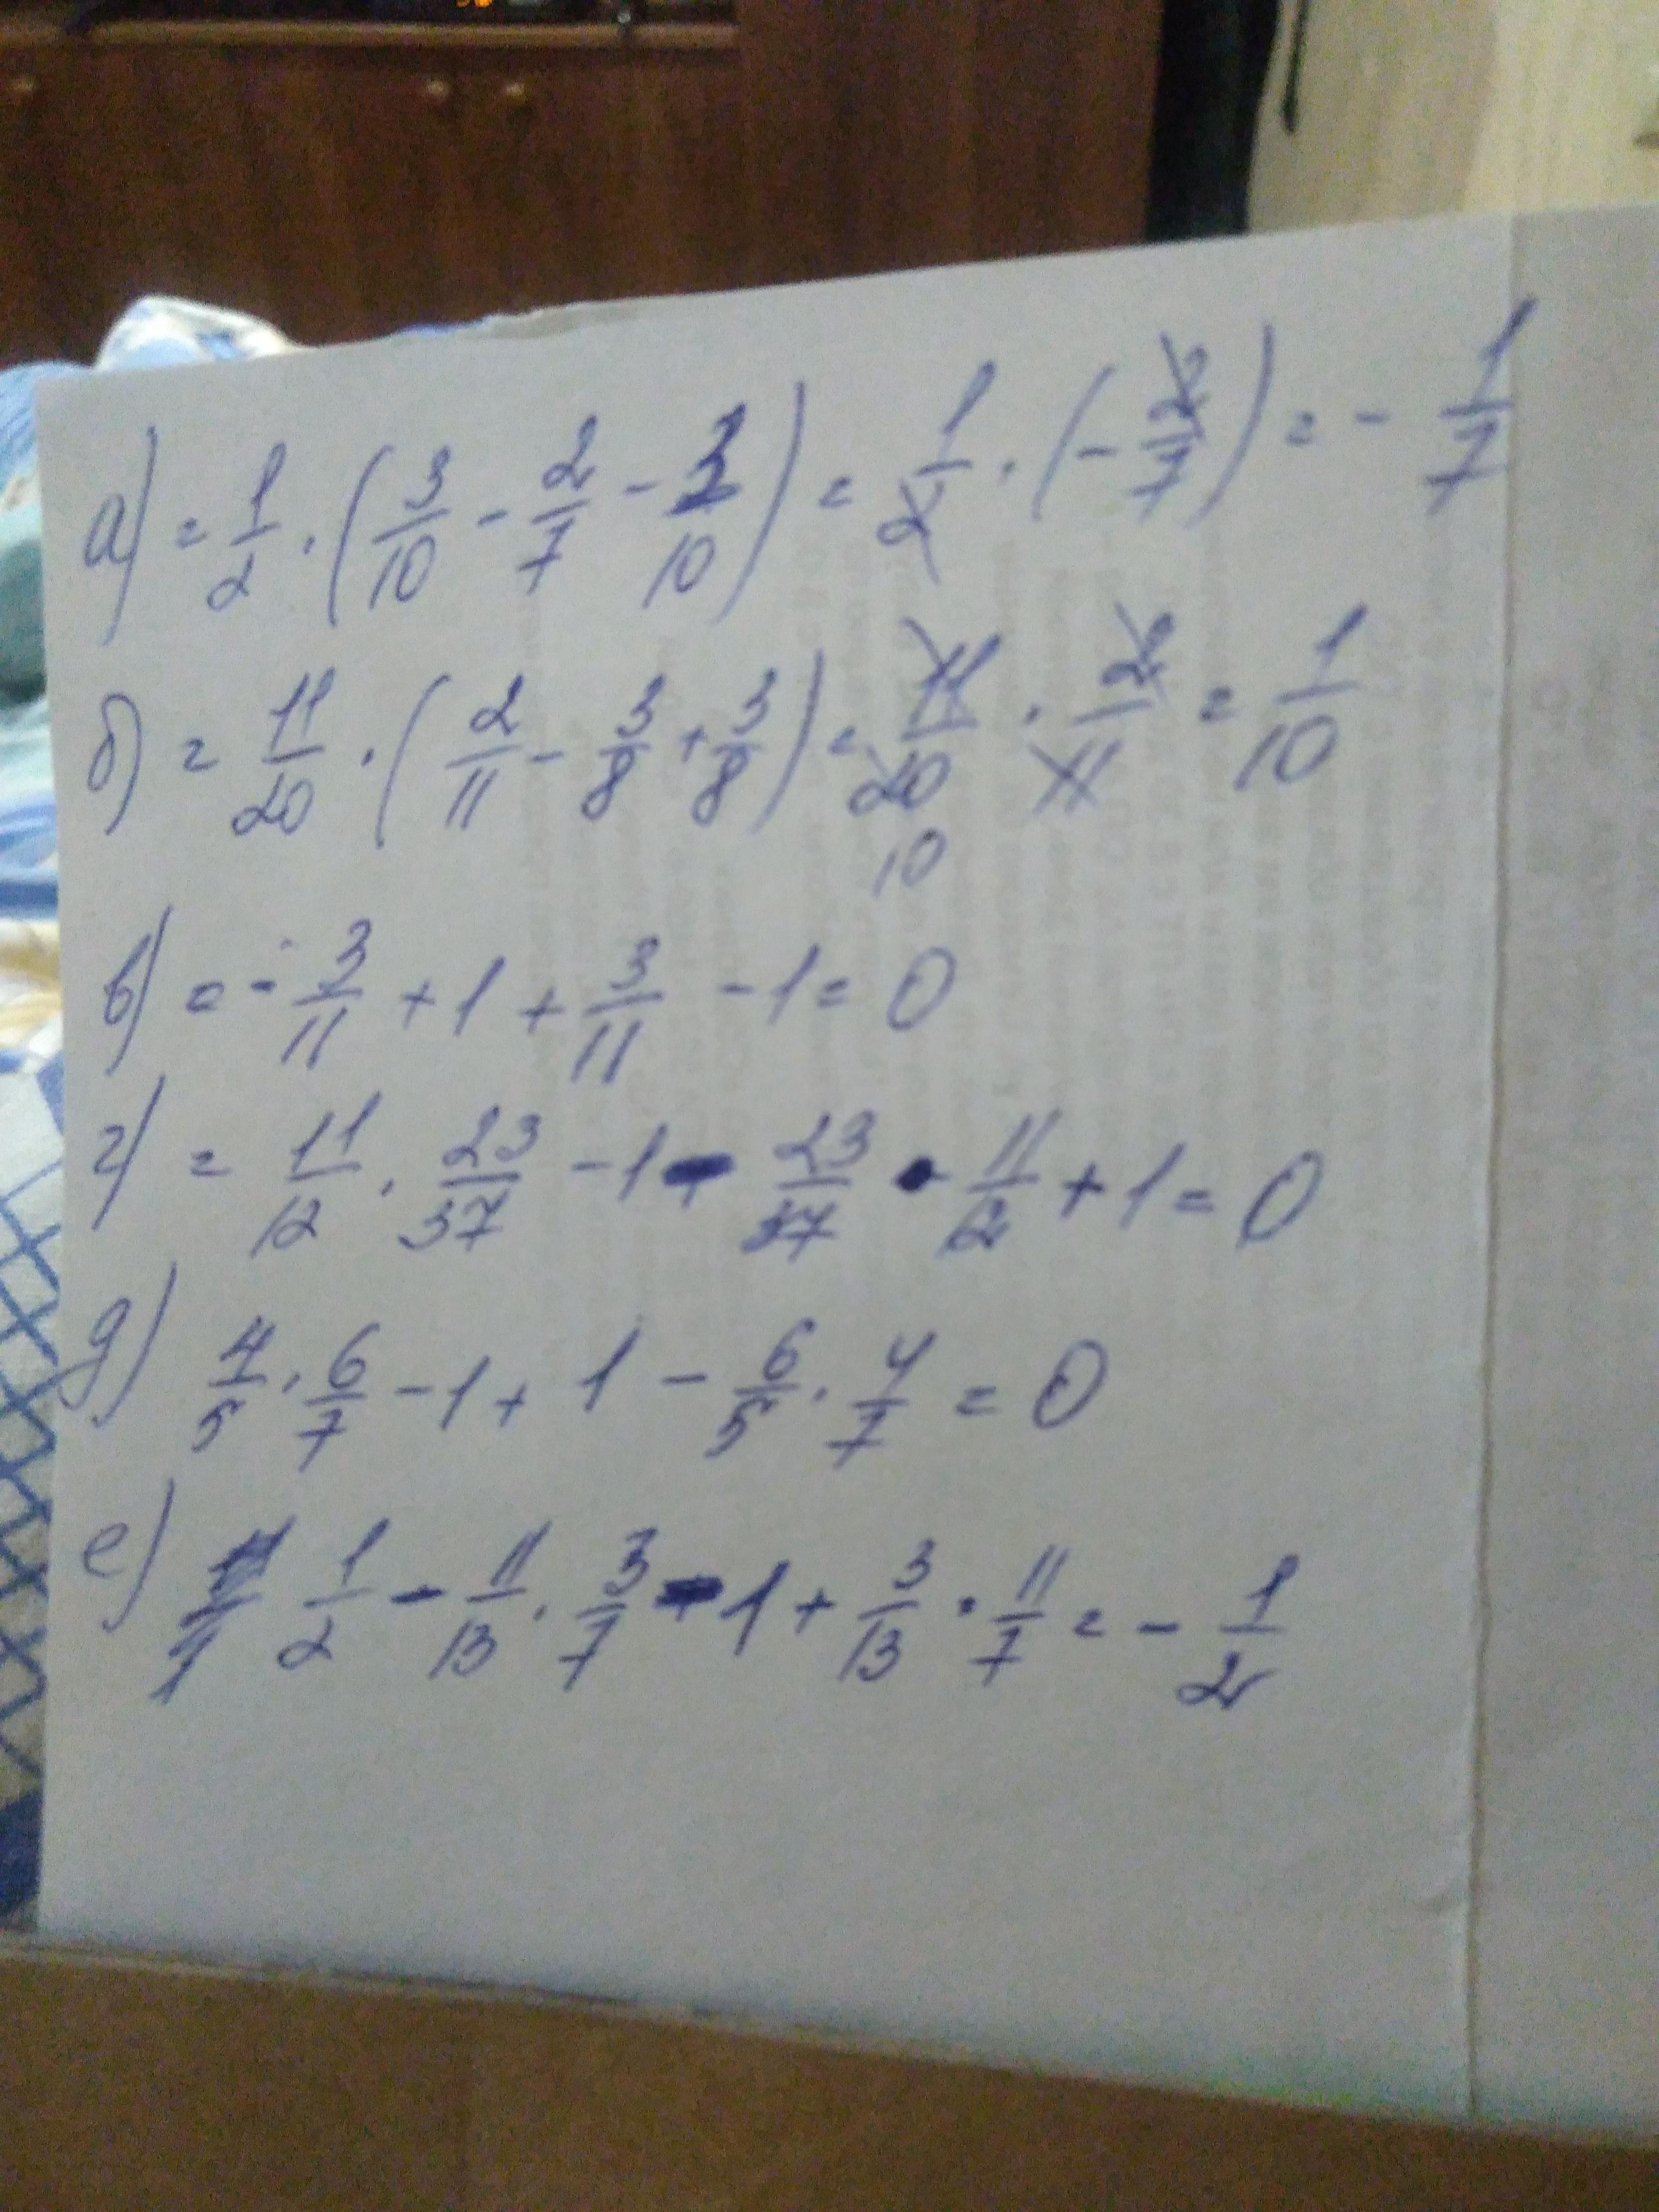 а) = 1/2 · (3/10 - 2/7 - 3/10) = 1/2 · (- 2/7) = - 1/7
б) = 11/20 · (2/11 - 3/8 + 3/8) = 11/20 · 2/11 = 1/10
10
в) = - 3/11 + 1 + 3/11 - 1 = 0
г) = 11/12 · 23/37 - 1 - 23/37 · 11/12 + 1 = 0
д) 4/5 · 6/7 - 1 + 1 - 6/5 · 4/7 = 0
е) 1/2 - 11/13 · 3/7 - 1 + 3/13 · 11/7 = - 1/2